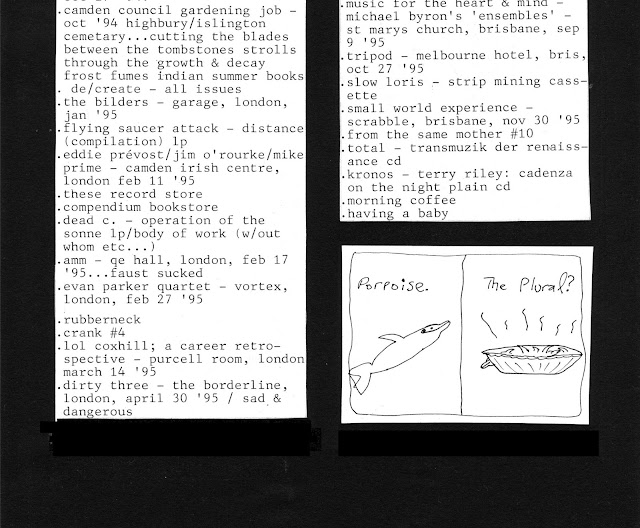 .camden council gardening job -
oct '94 highbury/islington
cemetary...cutting the blades
between the tombstones strolls
through the growth & decay
frost fumes indian summer books
. de/create - all issues
.the bilders - garage, london,
jan '95
.flying saucer attack - distance
(compilation) lp
.eddie prévost/jim o'rourke/mike
prime - camden irish centre,
london feb 11 '95
.these record store
.compendium bookstore
.dead c. - operation of the
sonne lp/body of work (w/out
whom etc...)
.amm - qe hall, london, feb 17
'95...faust sucked
.evan parker quartet - vortex,
london, feb 27 '95
.rubberneck
.crank #4
.lol coxhill; a career retro-
spective - purcell room, london
march 14 '95
.dirty three - the borderline,
london, april 30 '95 / sad &
dangerous
.music for the heart & mind -
michael byron's 'ensembles' -
st marys church, brisbane, sep
9 '95
.tripod - melbourne hotel, bris,
oct 27 '95
.slow loris - strip mining cass-
ette
.small world experience -
scrabble, brisbane, nov 30 '95
.from the same mother #10
.total - transmuzik der renaiss-
ance cd
.kronos - terry riley: cadenza
on the night plain cd
.morning coffee
.having a baby
Porpoise.
The Plural?